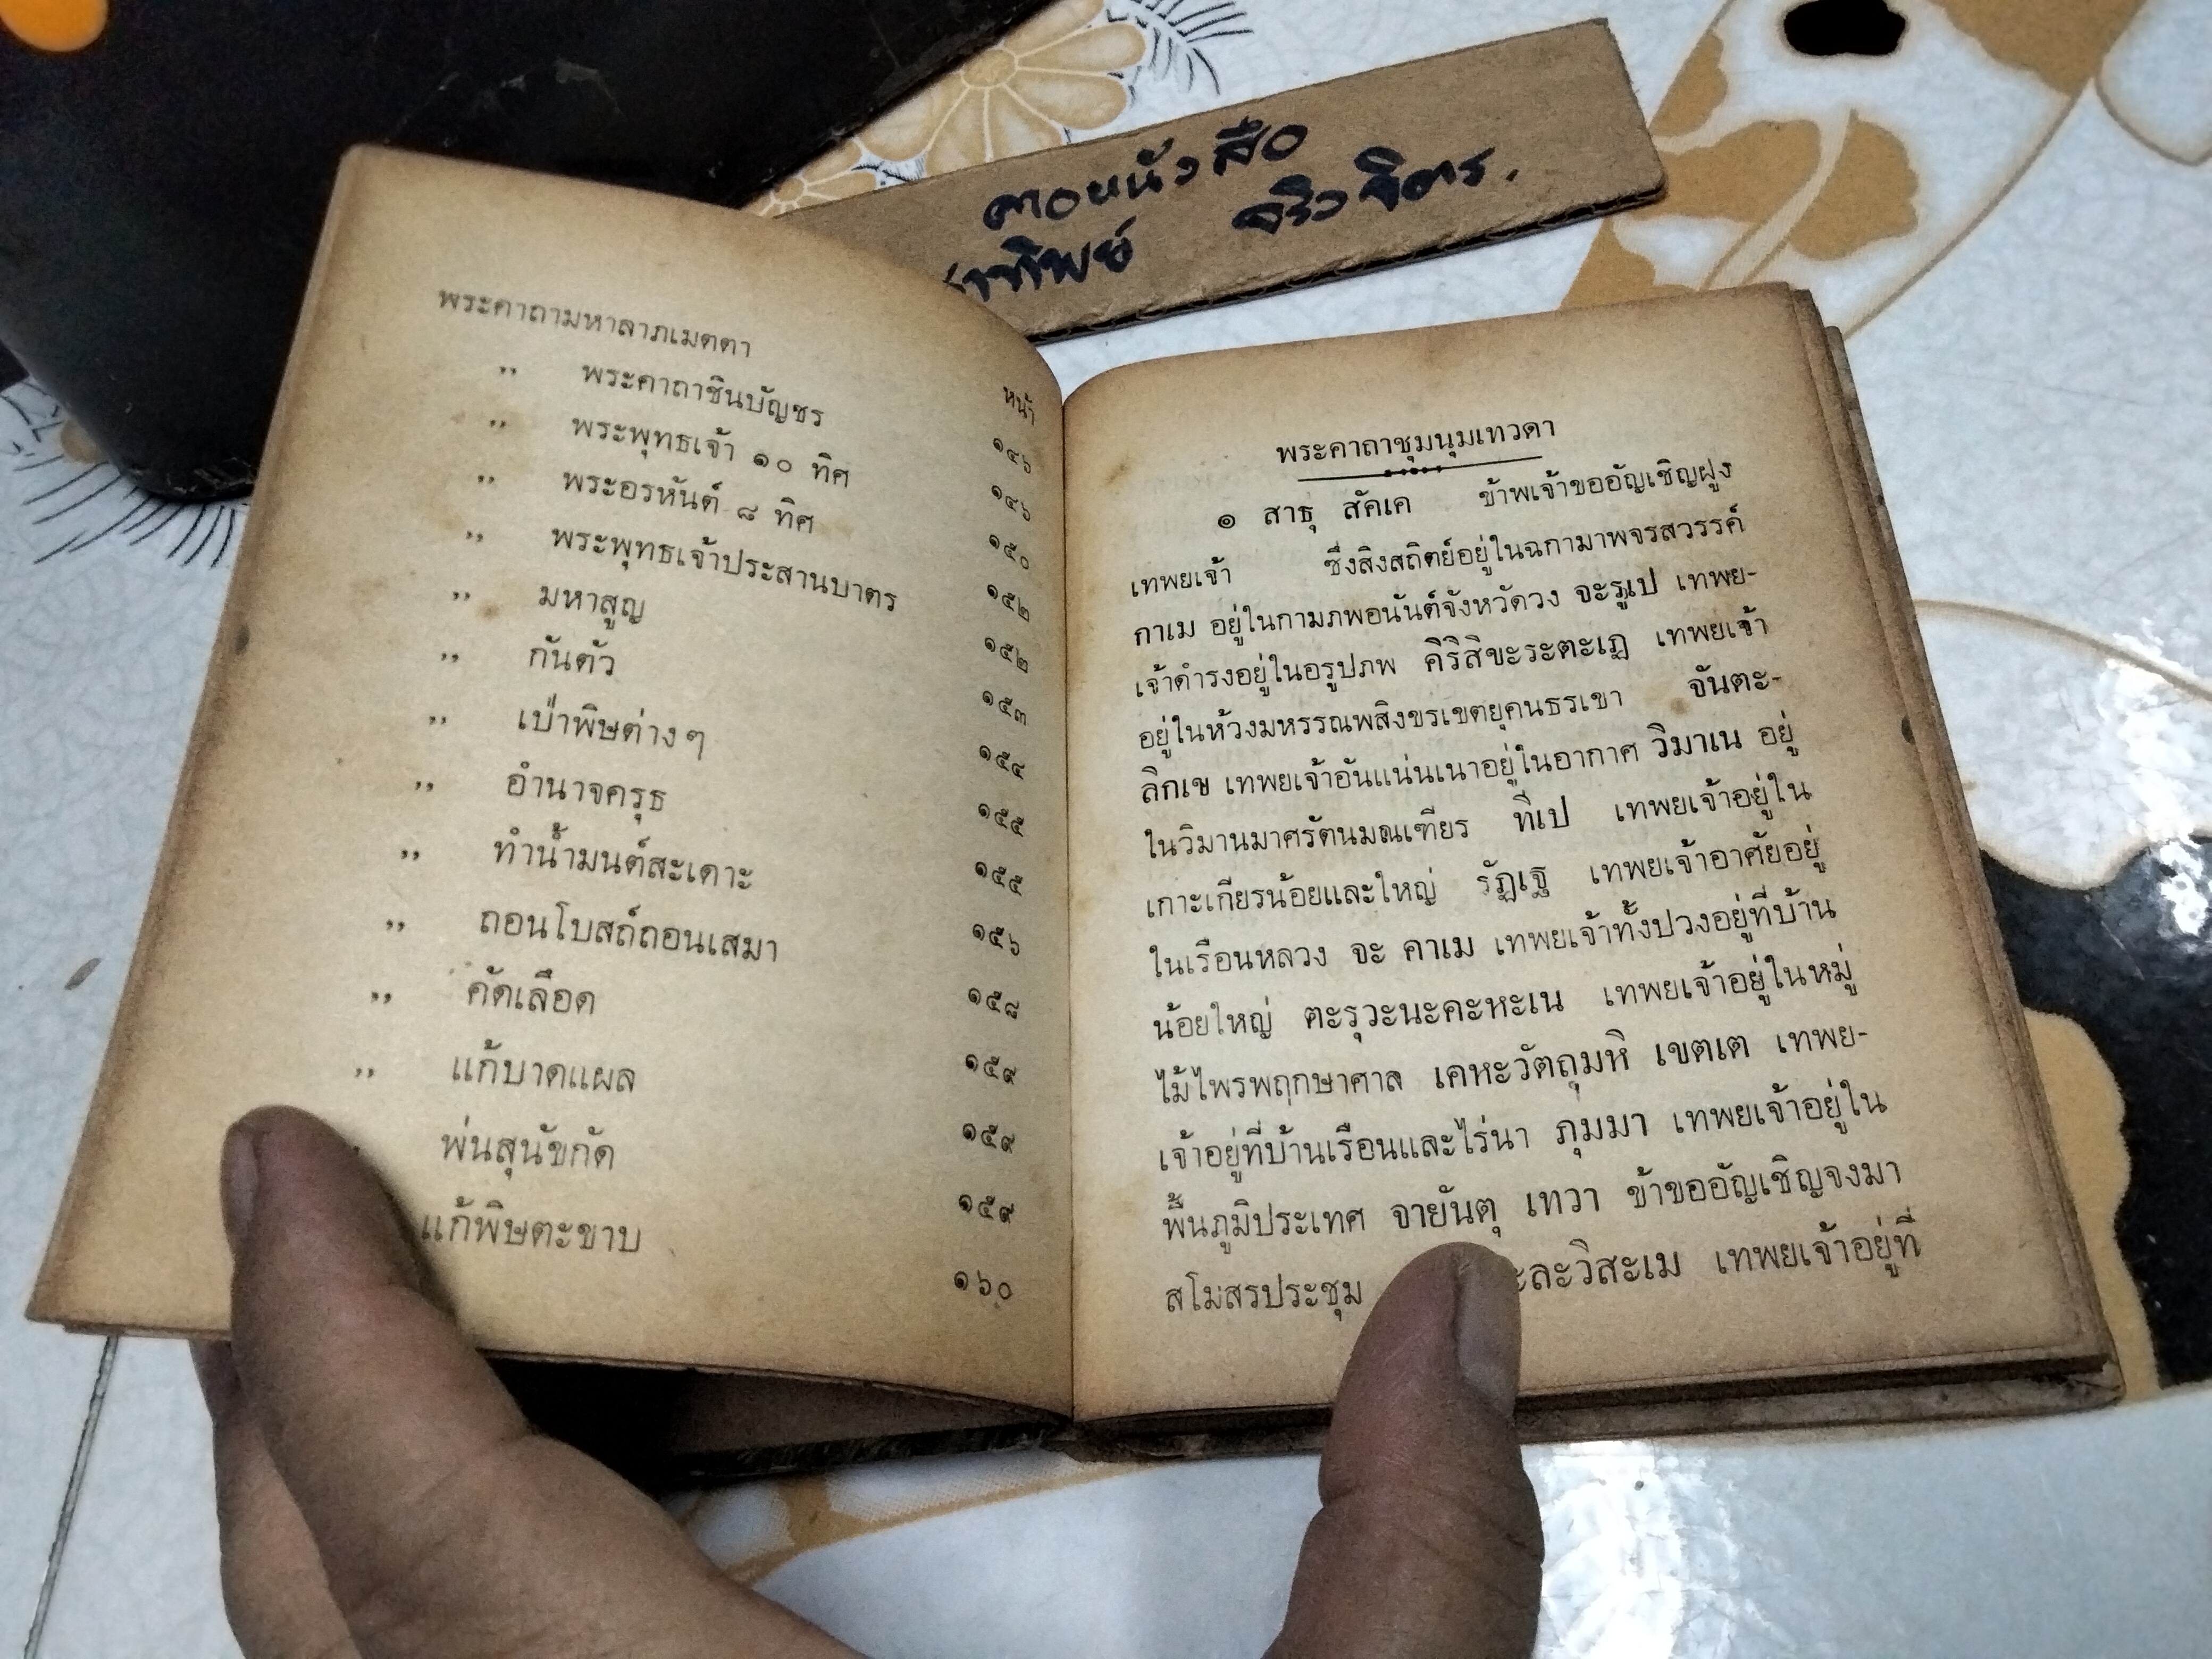 คอยหนังสือ
าทิพย์ จริวจิตร.
หน้า
พระคาถามหาลาภเมตตา ๑๔๖
” พระคาถาชินบัญชร ๑๔๖
” พระพุทธเจ้า ๑๐ ทิศ ๑๕๐
” พระอรหันต์ ๘ ทิศ ๑๕๒
” พระพุทธเจ้าประสานบาตร ๑๕๒
” มหาสูญ ๑๕๓
” กันตัว ๑๕๔
” เป่าพิษต่างๆ ๑๕๕
” อำนาจครุธ ๑๕๕
” ทำน้ำมนต์สะเดาะ ๑๕๖
” ถอนโบสถ์ถอนเสมา ๑๕๘
” คัดเลือด ๑๕๙
” แก้บาดแผล ๑๕๙
พ่นสุนัขกัด ๑๕๙
แก้พิษตะขาบ ๑๖๐
พระคาถาชุมนุมเทวดา
๑ สาธุ สัคเค ข้าพเจ้าขออัญเชิญฝูง
เทพยเจ้า ซึ่งสิงสถิตย์อยู่ในฉกามาพจรสวรรค์
กาเม อยู่ในกามภพอนันต์จังหวัดวง จะรูเป เทพย-
เจ้าดำรงอยู่ในอรูปภพ คิริสิขะระตะเฏ เทพยเจ้า
อยู่ในห้วงมหรรณพสิงขรเขตยุคนธรเขา จันตะ-
ลิกเข เทพยเจ้าอันแน่นเนาอยู่ในอากาศ วิมาเน อยู่
ในวิมานมาศรัตนมณเฑียร ทีเป เทพยเจ้าอยู่ใน
เกาะเกียรน้อยและใหญ่ รัฏเฐ เทพยเจ้าอาศัยอยู่
ในเรือนหลวง จะ คาเม เทพยเจ้าทั้งปวงอยู่ที่บ้าน
น้อยใหญ่ ตะรุวะนะคะหะเน เทพยเจ้าอยู่ในหมู่
ไม้ไพรพฤกษาศาล เคหะวัตถุมหิ เขตเต เทพย-
เจ้าอยู่ที่บ้านเรือนและไร่นา ภุมมา เทพยเจ้าอยู่ใน
พื้นภูมิประเทศ จายันตุ เทวา ข้าขออัญเชิญจงมา
สโมสรประชุม ะละวิสะเม เทพยเจ้าอยู่ที่